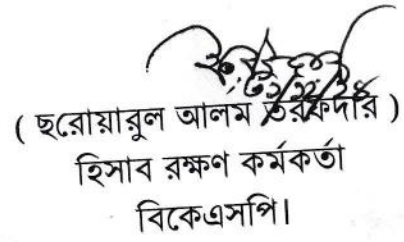 ( ছরোয়ারুল আলম তরফদার )
হিসাব রক্ষণ কর্মকর্তা
বিকেএসপি।